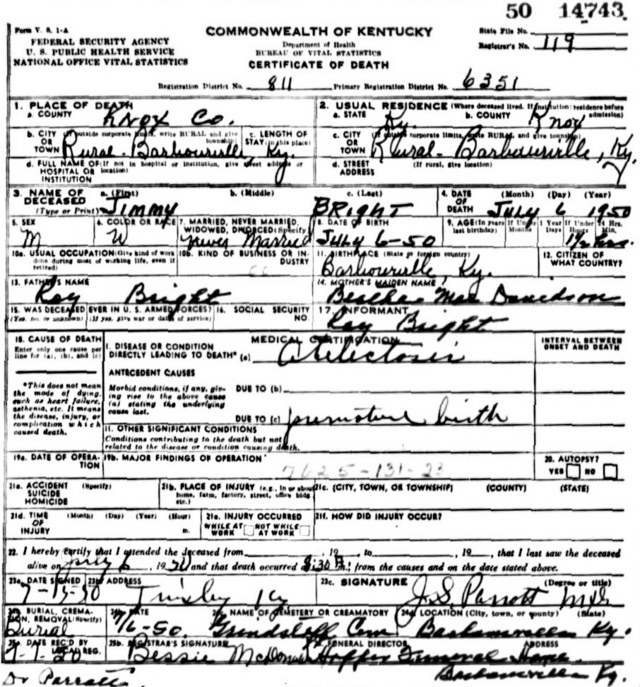 50 14743
Form V. S. 1-A
FEDERAL SECURITY AGENCY
U. S. PUBLIC HEALTH SERVICE
NATIONAL OFFICE VITAL STATISTICS
COMMONWEALTH OF KENTUCKY
Department of Health
BUREAU OF VITAL STATISTICS
CERTIFICATE OF DEATH
State File No.
Registrar's No. 119
Registration District No. 811 Primary Registration District No. 6351
1. PLACE OF DEATH
a. COUNTY Knox Co.
2. USUAL RESIDENCE (Where deceased lived. If institution: residence before admission)
a. STATE Ky. b. COUNTY Knox
b. CITY OR TOWN (If outside corporate limits, write RURAL and give township) Rural-Barbourville, Ky.
c. LENGTH OF STAY (in this place)
c. CITY OR TOWN (If outside corporate limits, write RURAL and give township) Rural-Barbourville, Ky.
d. FULL NAME OF HOSPITAL OR INSTITUTION (If not in hospital or institution, give street address or location)
d. STREET ADDRESS (If rural, give location)
3. NAME OF DECEASED (Type or Print) a. (First) b. (Middle) c. (Last)
JIMMY BRIGHT
4. DATE OF DEATH (Month) (Day) (Year)
JULY 6 1950
5. SEX M
6. COLOR OR RACE W
7. MARRIED, NEVER MARRIED, WIDOWED, DIVORCED (Specify) Never Married
8. DATE OF BIRTH JULY 6-50
9. AGE (In years last birthday) If Under 1 Year Months Days If Under 24 Hrs. Hours Min.
1½ hrs.
10a. USUAL OCCUPATION (Give kind of work done during most of working life, even if retired)
10b. KIND OF BUSINESS OR INDUSTRY
11. BIRTHPLACE (State or foreign country) Barbourville, Ky.
12. CITIZEN OF WHAT COUNTRY?
13. FATHER'S NAME Ray Bright
14. MOTHER'S MAIDEN NAME Bertha Mae Davidson
15. WAS DECEASED EVER IN U. S. ARMED FORCES? (Yes, no, or unknown) (If yes, give war or dates of service)
16. SOCIAL SECURITY NO.
17. INFORMANT Ray Bright
18. CAUSE OF DEATH
Enter only one cause per line for (a), (b), and (c)
MEDICAL CERTIFICATION
INTERVAL BETWEEN ONSET AND DEATH
I. DISEASE OR CONDITION DIRECTLY LEADING TO DEATH* (a) Atelectosis
*This does not mean the mode of dying, such as heart failure, asthenia, etc. It means the disease, injury, or complication which caused death.
ANTECEDENT CAUSES
Morbid conditions, if any, giving rise to the above cause (a) stating the underlying cause last.
DUE TO (b)
DUE TO (c) premature birth
II. OTHER SIGNIFICANT CONDITIONS
Conditions contributing to the death but not related to the disease or condition causing death.
19a. DATE OF OPERATION
19b. MAJOR FINDINGS OF OPERATION
7625-131-23
20. AUTOPSY?
YES NO
21a. ACCIDENT SUICIDE HOMICIDE (Specify)
21b. PLACE OF INJURY (e.g., in or about home, farm, factory, street, office bldg. etc.)
21c. (CITY, TOWN, OR TOWNSHIP) (COUNTY) (STATE)
21d. TIME OF INJURY (Month) (Day) (Year) (Hour) m
21e. INJURY OCCURRED
WHILE AT WORK NOT WHILE AT WORK
21f. HOW DID INJURY OCCUR?
22. I hereby certify that I attended the deceased from , 19 to , 19 , that I last saw the deceased
alive on July 6, 1950 and that death occurred 8:30 from the causes and on the date stated above.
23a. DATE SIGNED 7-15-50
23b. ADDRESS Trosley Ky
23c. SIGNATURE (Degree or title) J. S. Parrott
24a. BURIAL, CREMATION, REMOVAL (Specify) Burial
24b. DATE 7/6-50.
24c. NAME OF CEMETERY OR CREAMATORY Cem
24d. LOCATION (City, town, or county) (State) Ky.
DATE REC'D BY LOCAL REG.
25b. REGISTRAR'S SIGNATURE Bessie McDonald
FUNERAL DIRECTOR ADDRESS
Hopper Funeral Home
Barbourville Ky.
Dr Parrott